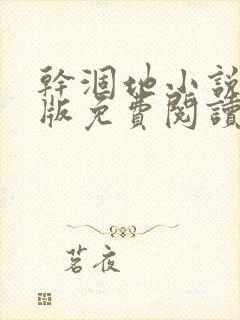 幹涸地小說
版免費閱讀
茗夜